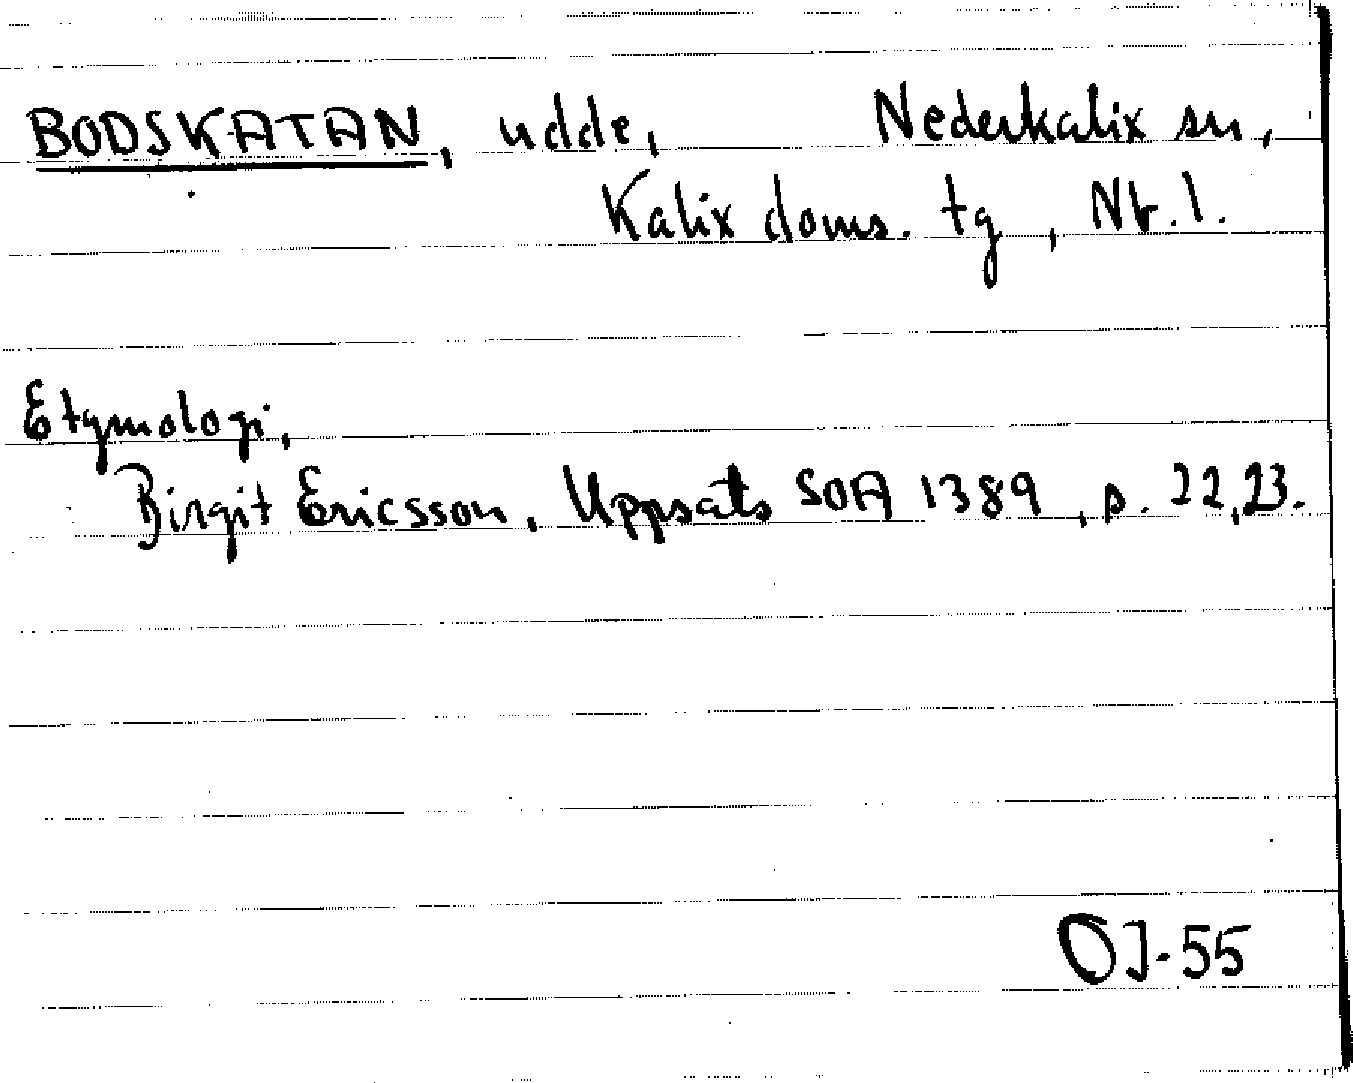 BODSKATAN, udde, Nederkalix sn,
Kalix doms. tg, Nb. l.
Etymologi,
Birgit Ericsson, Uppsats SOA 1389, s. 22,23.
OJ-55